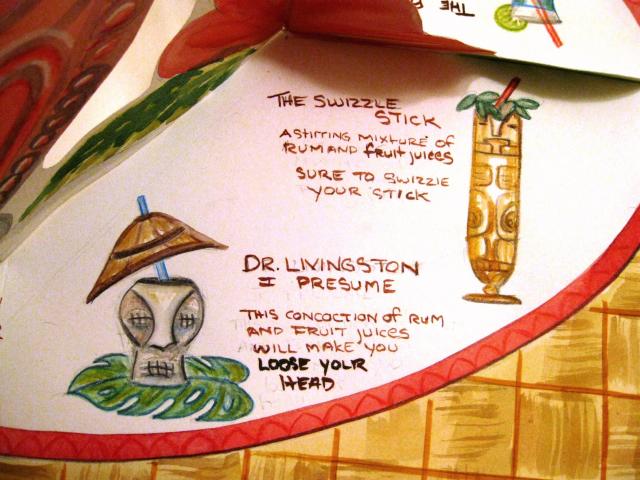 THE
THE SWIZZLE
STICK
A STIRRING MIXTURE OF
RUM AND fruit juices
SURE TO SWIZZLE
YOUR STICK
DR. LIVINGSTON
I PRESUME
THIS CONCOCTION OF RUM
AND FRUIT JUICES
WILL MAKE YOU
LOOSE YOUR
HEAD